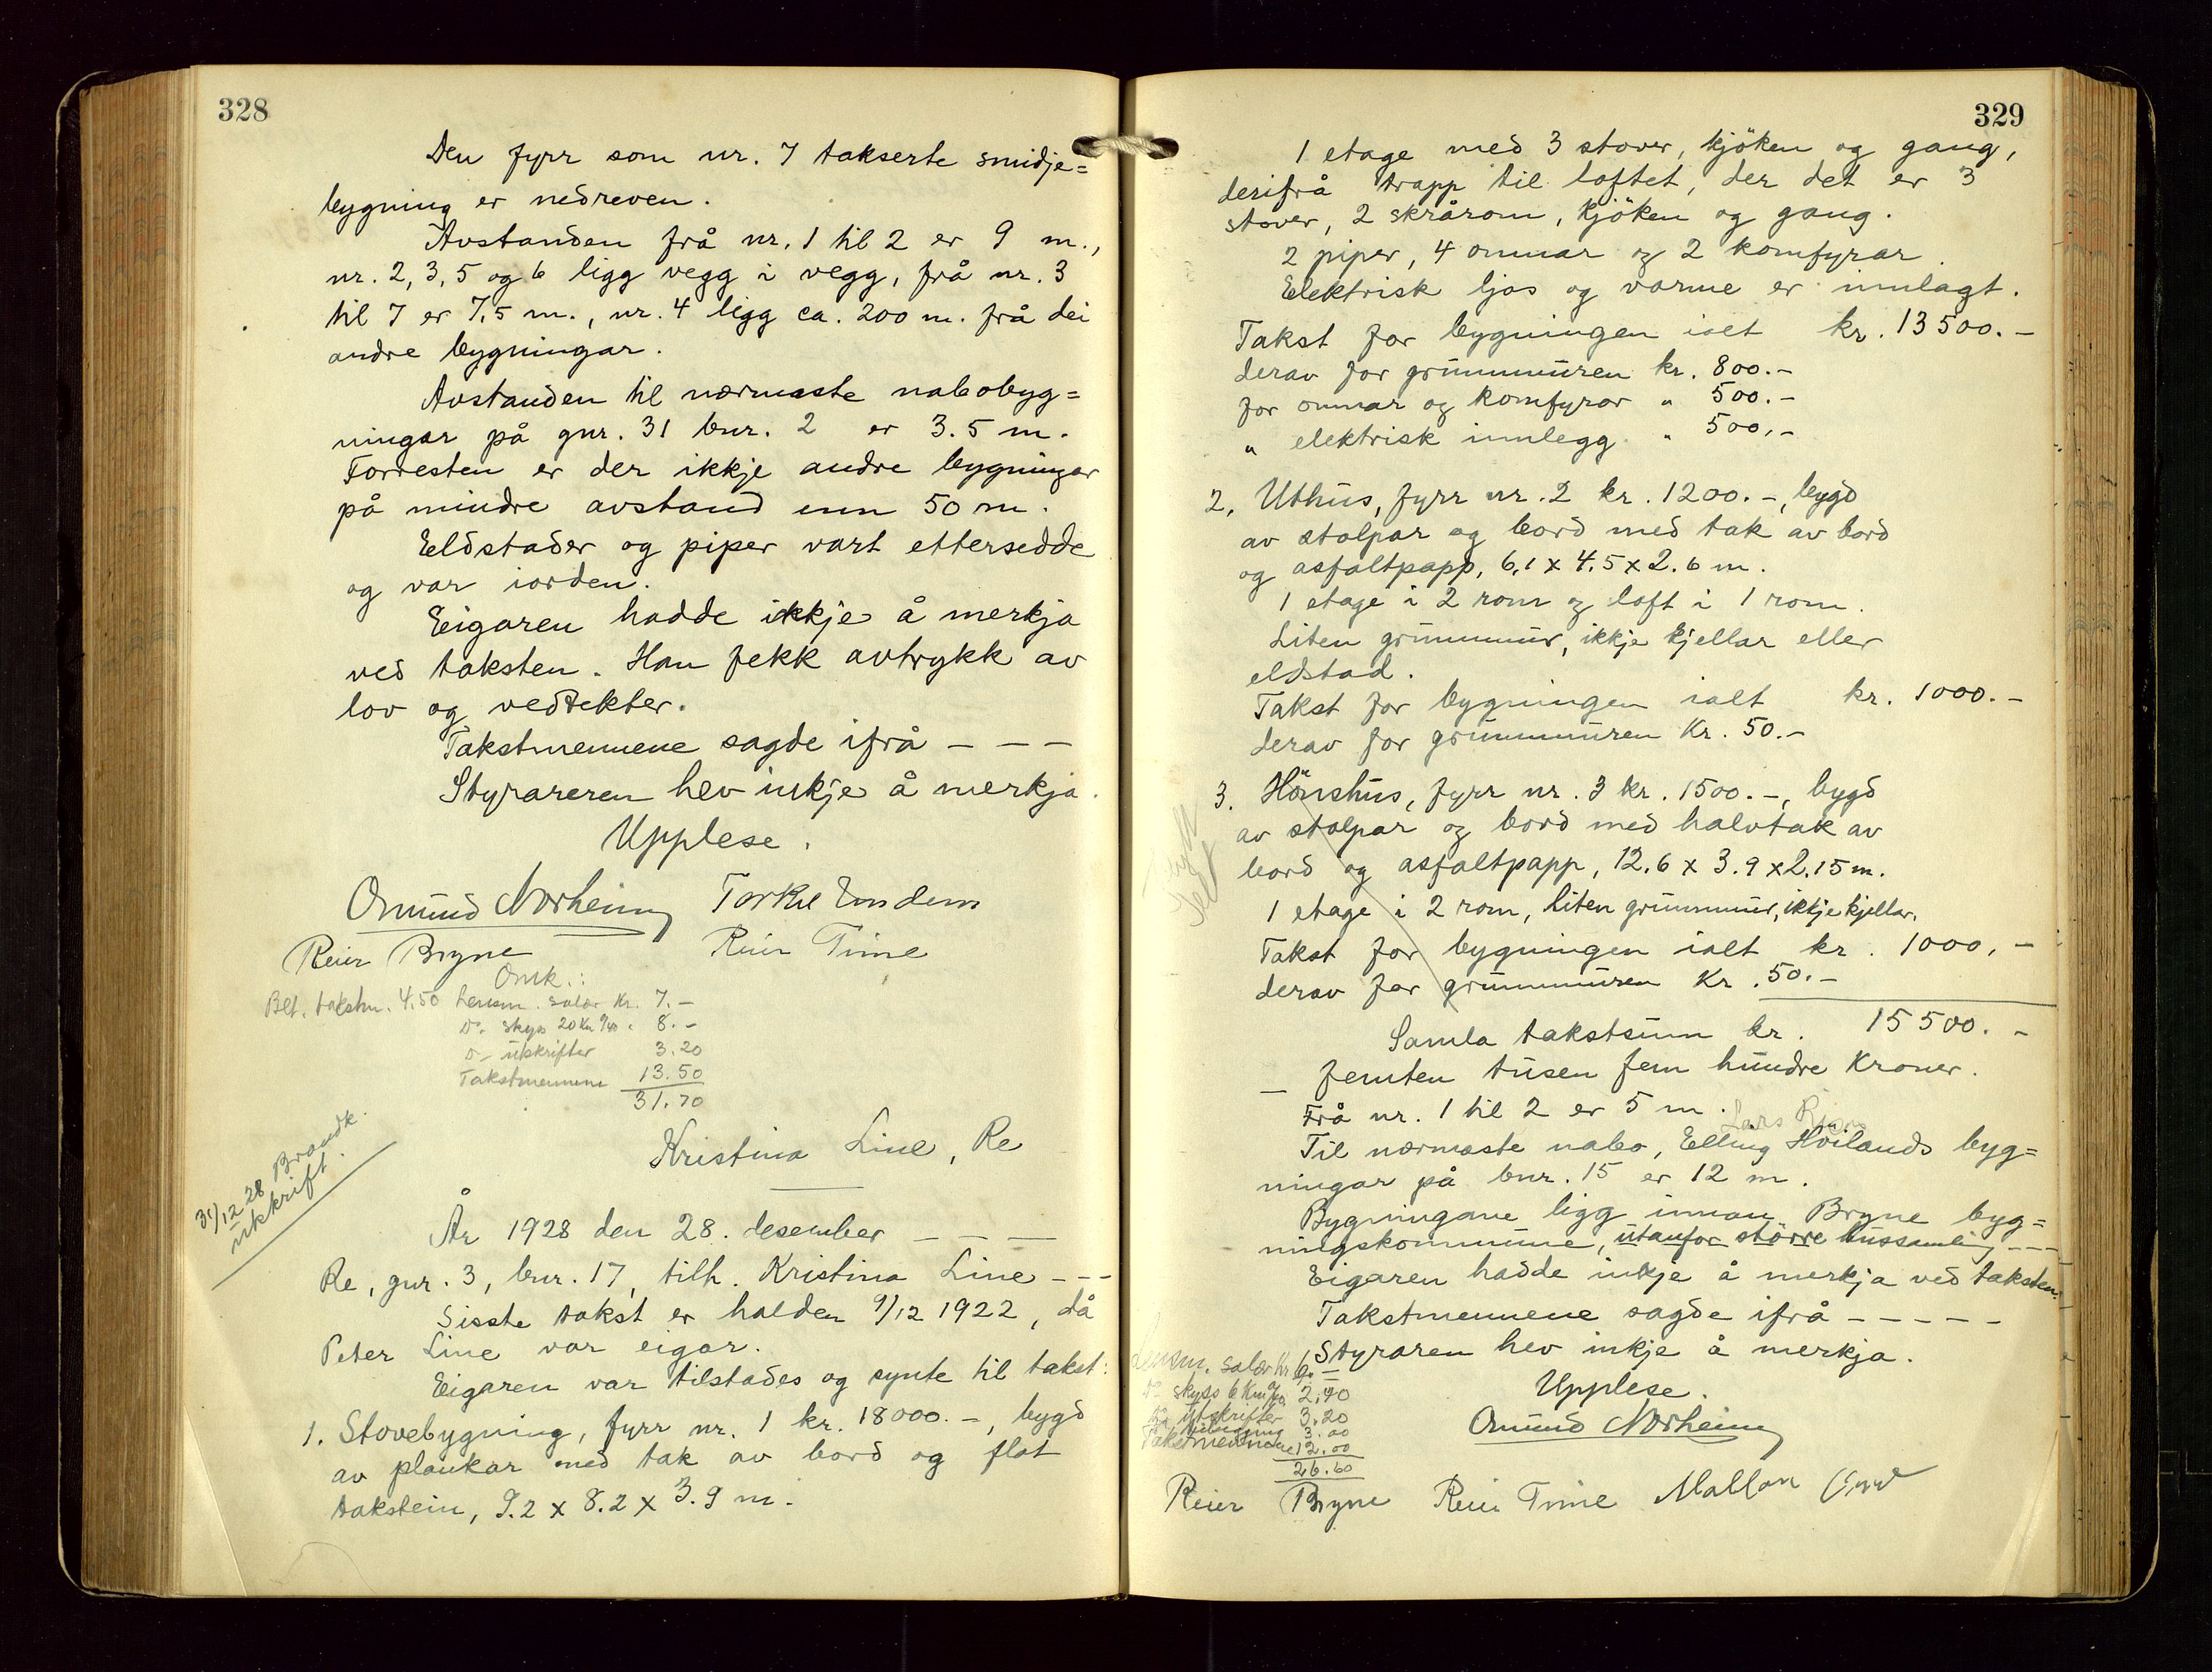 328
Den fyrr som nr. 7 takserte smidje=
bygning er nedreven.
Avstanden frå nr. 1 til 2 er 9 m.,
nr. 2, 3, 5 og 6 ligg vegg i vegg, frå nr. 3
til 7 er 7,5 m., nr. 4 ligg ca. 200 m. frå dei
andre bygningar.
Avstanden til nærmaste nabobyg=
ningar på gnr. 31 bnr. 2 er 3.5 m.
Forresten er der ikkje andre bygningar
på mindre avstand enn 50 m.
Eldstader og piper vart ettersedde
og var iorden.
Eigaren hadde ikkje å merkja
ved taksten. Han fekk avtrykk av
lov og vedtekter.
Takstmennene sagde ifrå - - -
Styraren hev inkje å merkja.
Upplese.
Omund Norheim Torkel
Reier Bryne Reier Time
Omk.:
Bet. takstm. 4.50 lensm. salær kr. 7.-
Do skyss 20 km 8.-
Do utskrifter 3.20
Takstmennene 13.50
31.70
Kristina Line, Re
31/12 28 Brandk.
utskrift.
År 1928 den 28. desember - - -
Re, gnr. 3, bnr. 17, tilh. Kristina Line - - -
Sisste takst er halden 9/12 1922, då
Peter Line var eigar.
Eigaren var tilstades og synte til takst:
1. Stovebygning, fyrr nr. 1 kr. 18000.-, bygd
av plankar med tak av bord og flat
takstein, 9.2 x 8.2 x 3.9 m.
329
1 etage med 3 stover, kjöken og gang,
derifrå trapp til loftet, der det er 3
stover, 2 skrårom, kjöken og gang.
2 piper, 4 omnar og 2 komfyrar.
Elektrisk ljos og varme er innlagt.
Takst for bygningen ialt kr. 13500.-
derav for grunnmuren kr. 800.-
for omnar og komfyrar " 500.-
" elektrisk innlegg " 500,-
2. Uthus, fyrr nr. 2 kr. 1200.-, bygd
av stolpar og bord med tak av bord
og asfaltpapp, 6,1 x 4.5 x 2.6 m.
1 etage i 2 rom og loft i 1 rom.
Liten grunnmur, ikkje kjellar eller
eldstad.
Takst for bygningen ialt kr. 1000.-
derav for grunnmuren kr. 50.-
3. Hönshus, fyrr nr. 3 kr. 1500.-, bygd
av stolpar og bord med halvtak av
bord og asfaltpapp, 12.6 x 3.9 x 2.15 m.
1 etage i 2 rom, liten grunnmur, ikkje kjellar.
Takst for bygningen ialt kr. 1000,-
derav for grunnmuren kr. 50.-
Samla takstsum kr. 15500.-
- femten tusen fem hundre kroner.
Frå nr. 1 til 2 er 5 m.
Lars
Til nærmaste nabo, Elling Höilands byg=
ningar på bnr. 15 er 12 m.
Bygningane ligg innan Bryne byg=
ningskommune, utanfor större hussamling - - -
Eigaren hadde inkje å merkja ved taksten.
Takstmennene sagde ifrå - - - - -
Styraren hev inkje å merkja.
Lensm. salær kr. 6.-
Do skyss 6 km 2,40
Do utskrifter 3.20
3.00
Takstmennene 12.00
26.60
Upplese.
Omund Norheim
Reier Bryne Reier Time